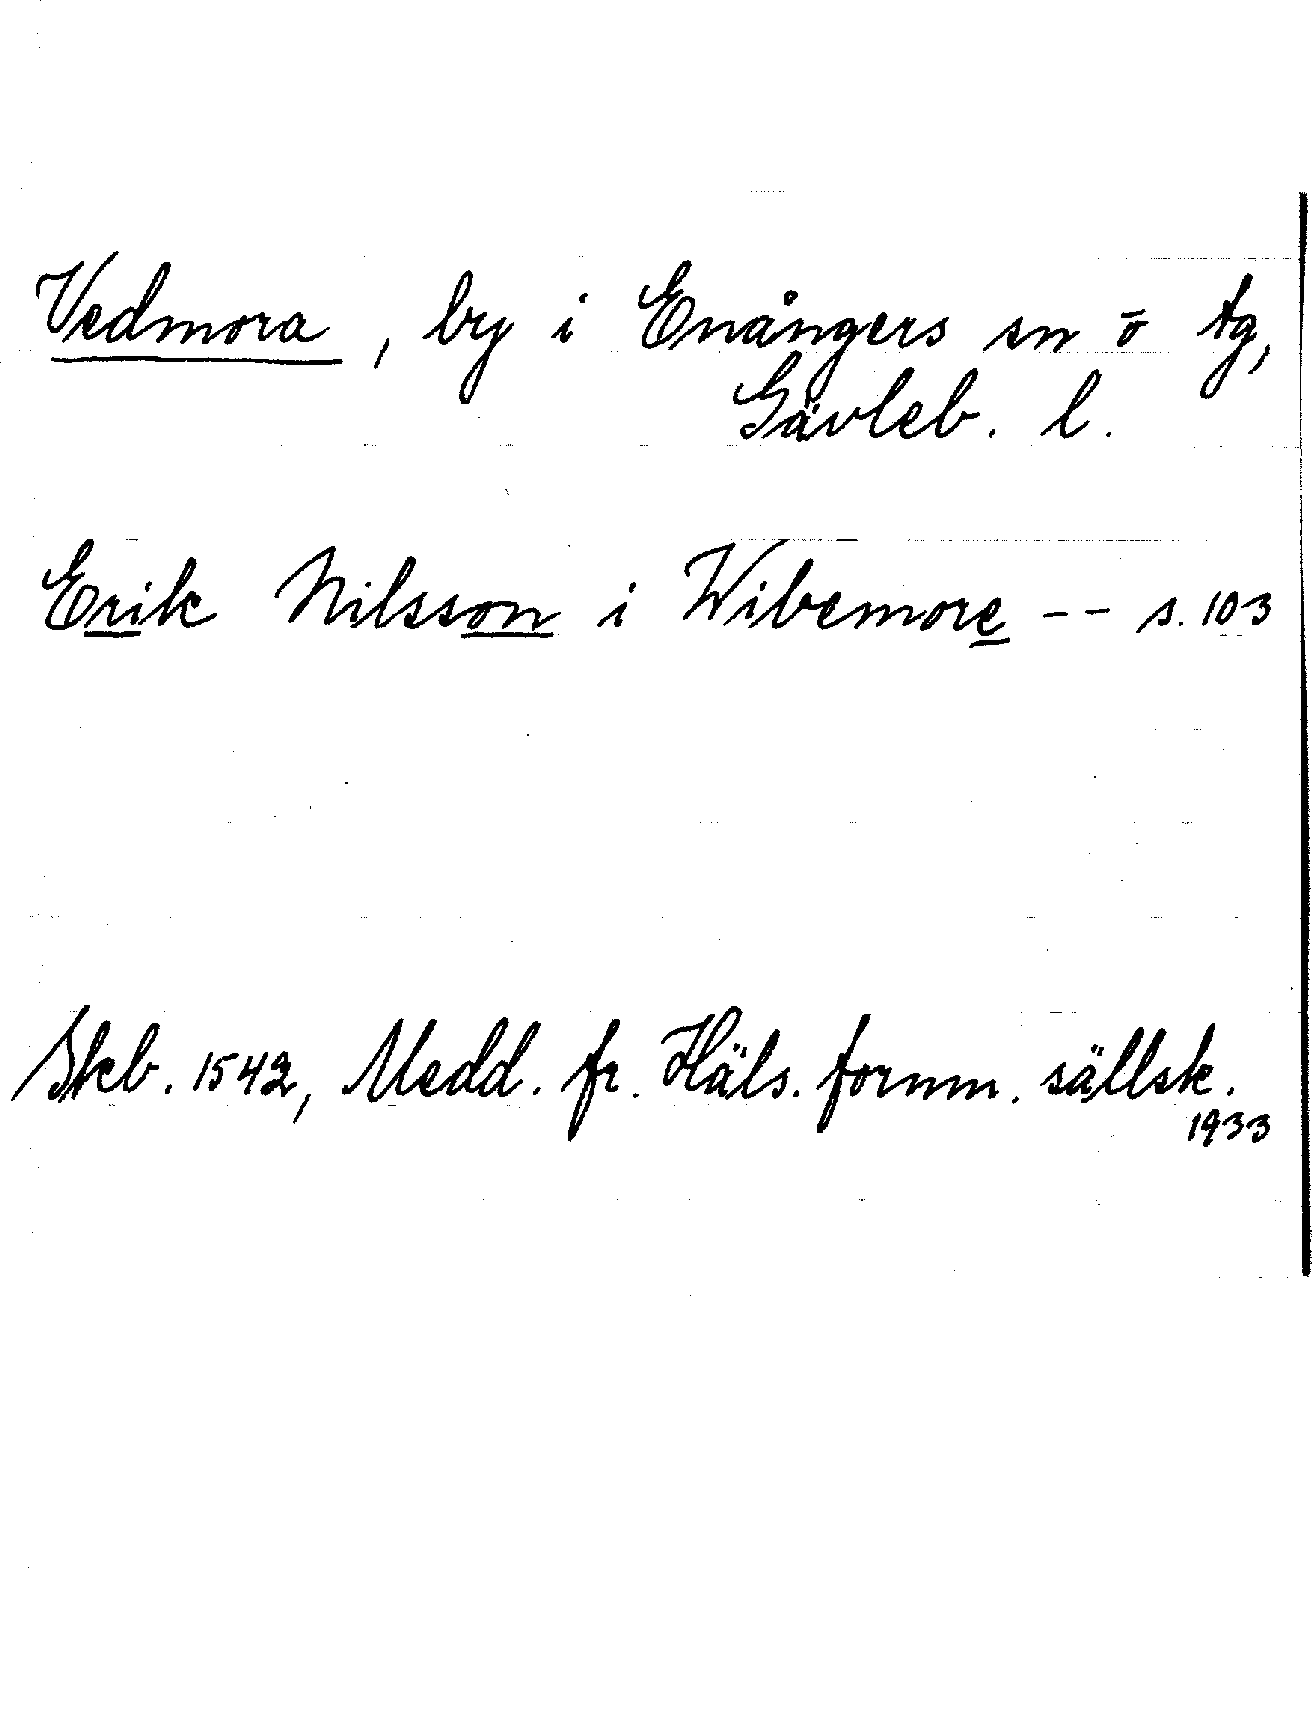 Vedmora, by i Enångers sn o tg,
Gävleb. l.
Erik Nilsson i Wibemore -- s. 103
Skb. 1542, Medd. fr. Häls. fornm. sällsk.
1933